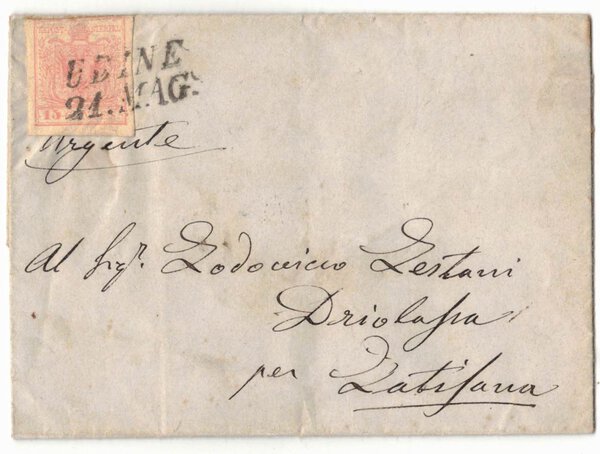 UDINE
21. MAG.
15
Urgente
Al Sigr. Lodovico Lestani
Driolassa
per Latisana